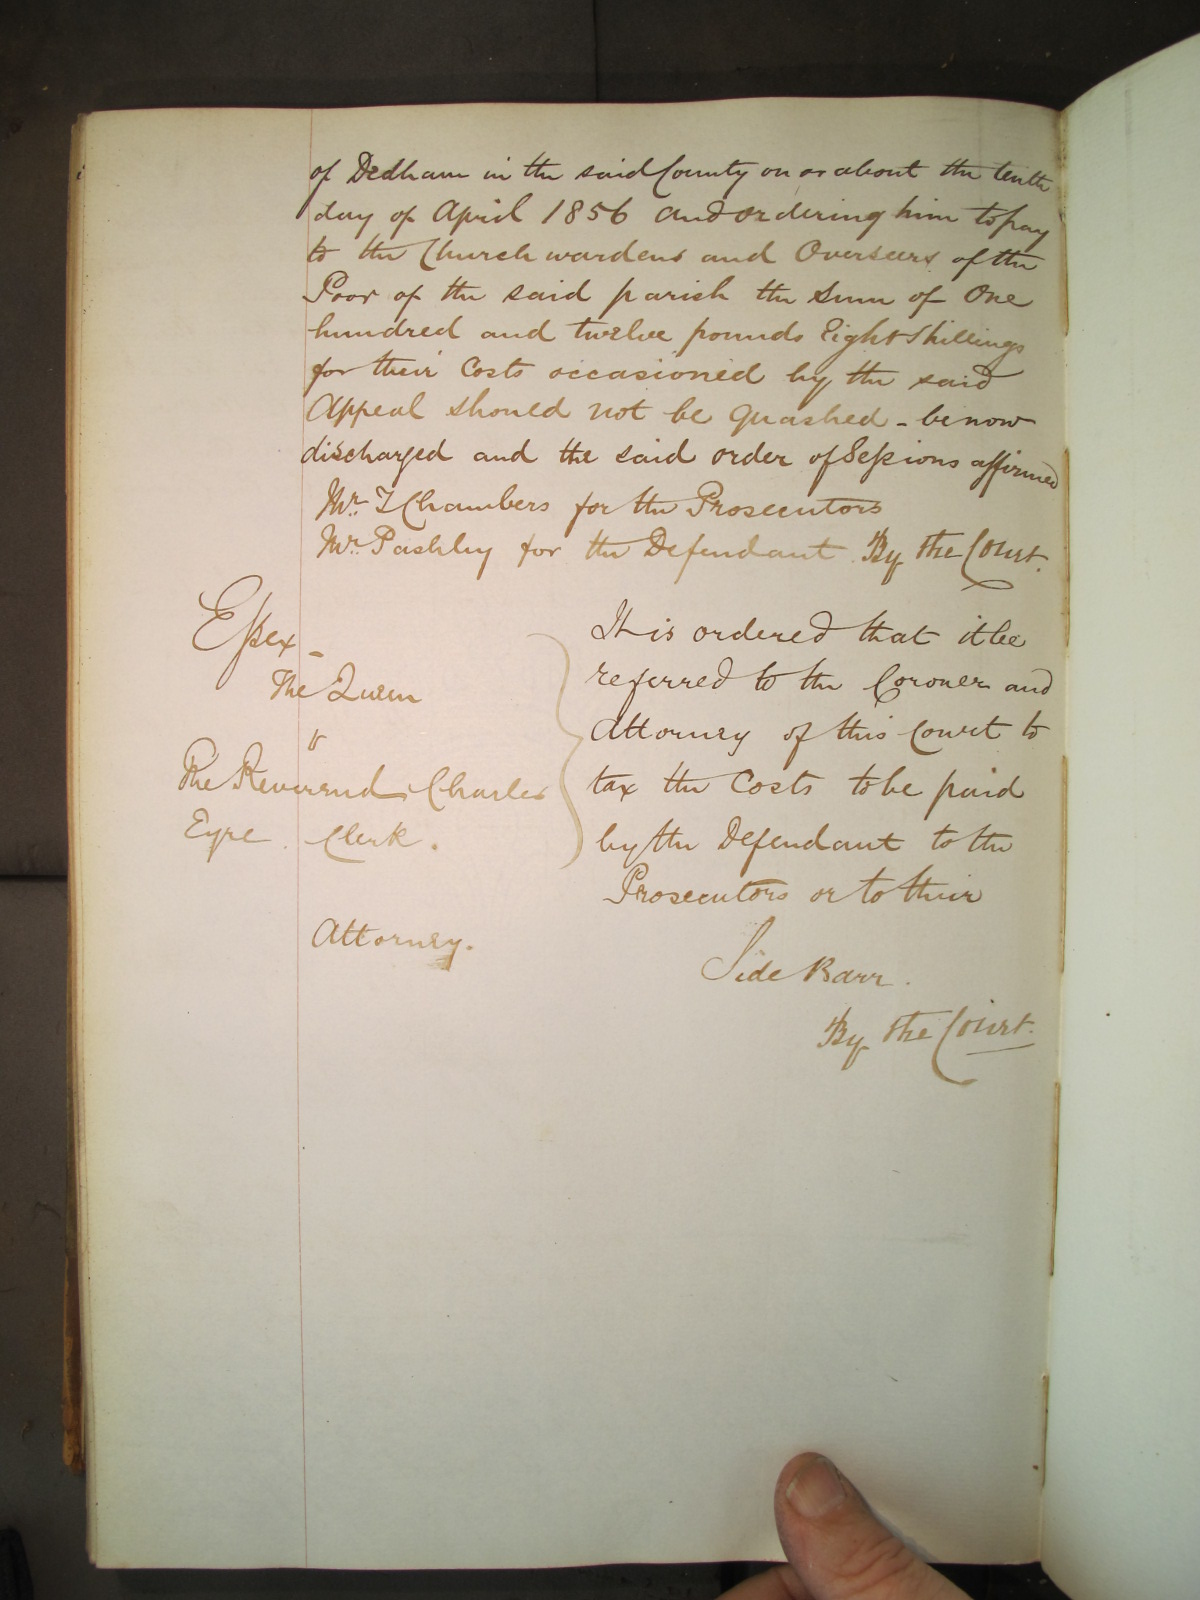 of Dedham in the said County on or about the tenth
day of April 1856 and ordering him to pay
to the Churchwardens and Overseers of the
Poor of the said parish the Sum of One
hundred and twelve pounds Eight Shillings
for their Costs occasioned by the said
Appeal should not be quashed - be now
discharged and the said order of Sessions affirmed
Mr. T Chambers for the Prosecutors
Mr. Pashley for the Defendant By the Court.
Essex -
The Queen
v
The Reverend Charles
Eyre Clerk.
It is ordered that it be
referred to the Coroner and
Attorney of this Court to
tax the Costs to be paid
by the Defendant to the
Prosecutors or to their
Attorney.
Side Barr.
By the Court.